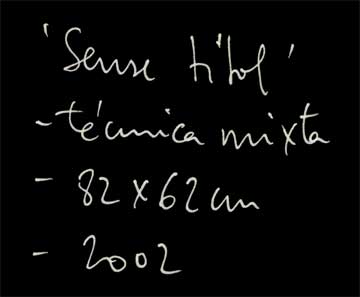 'Sense títol'
- técnica mixta
- 82 x 62 cm
- 2002